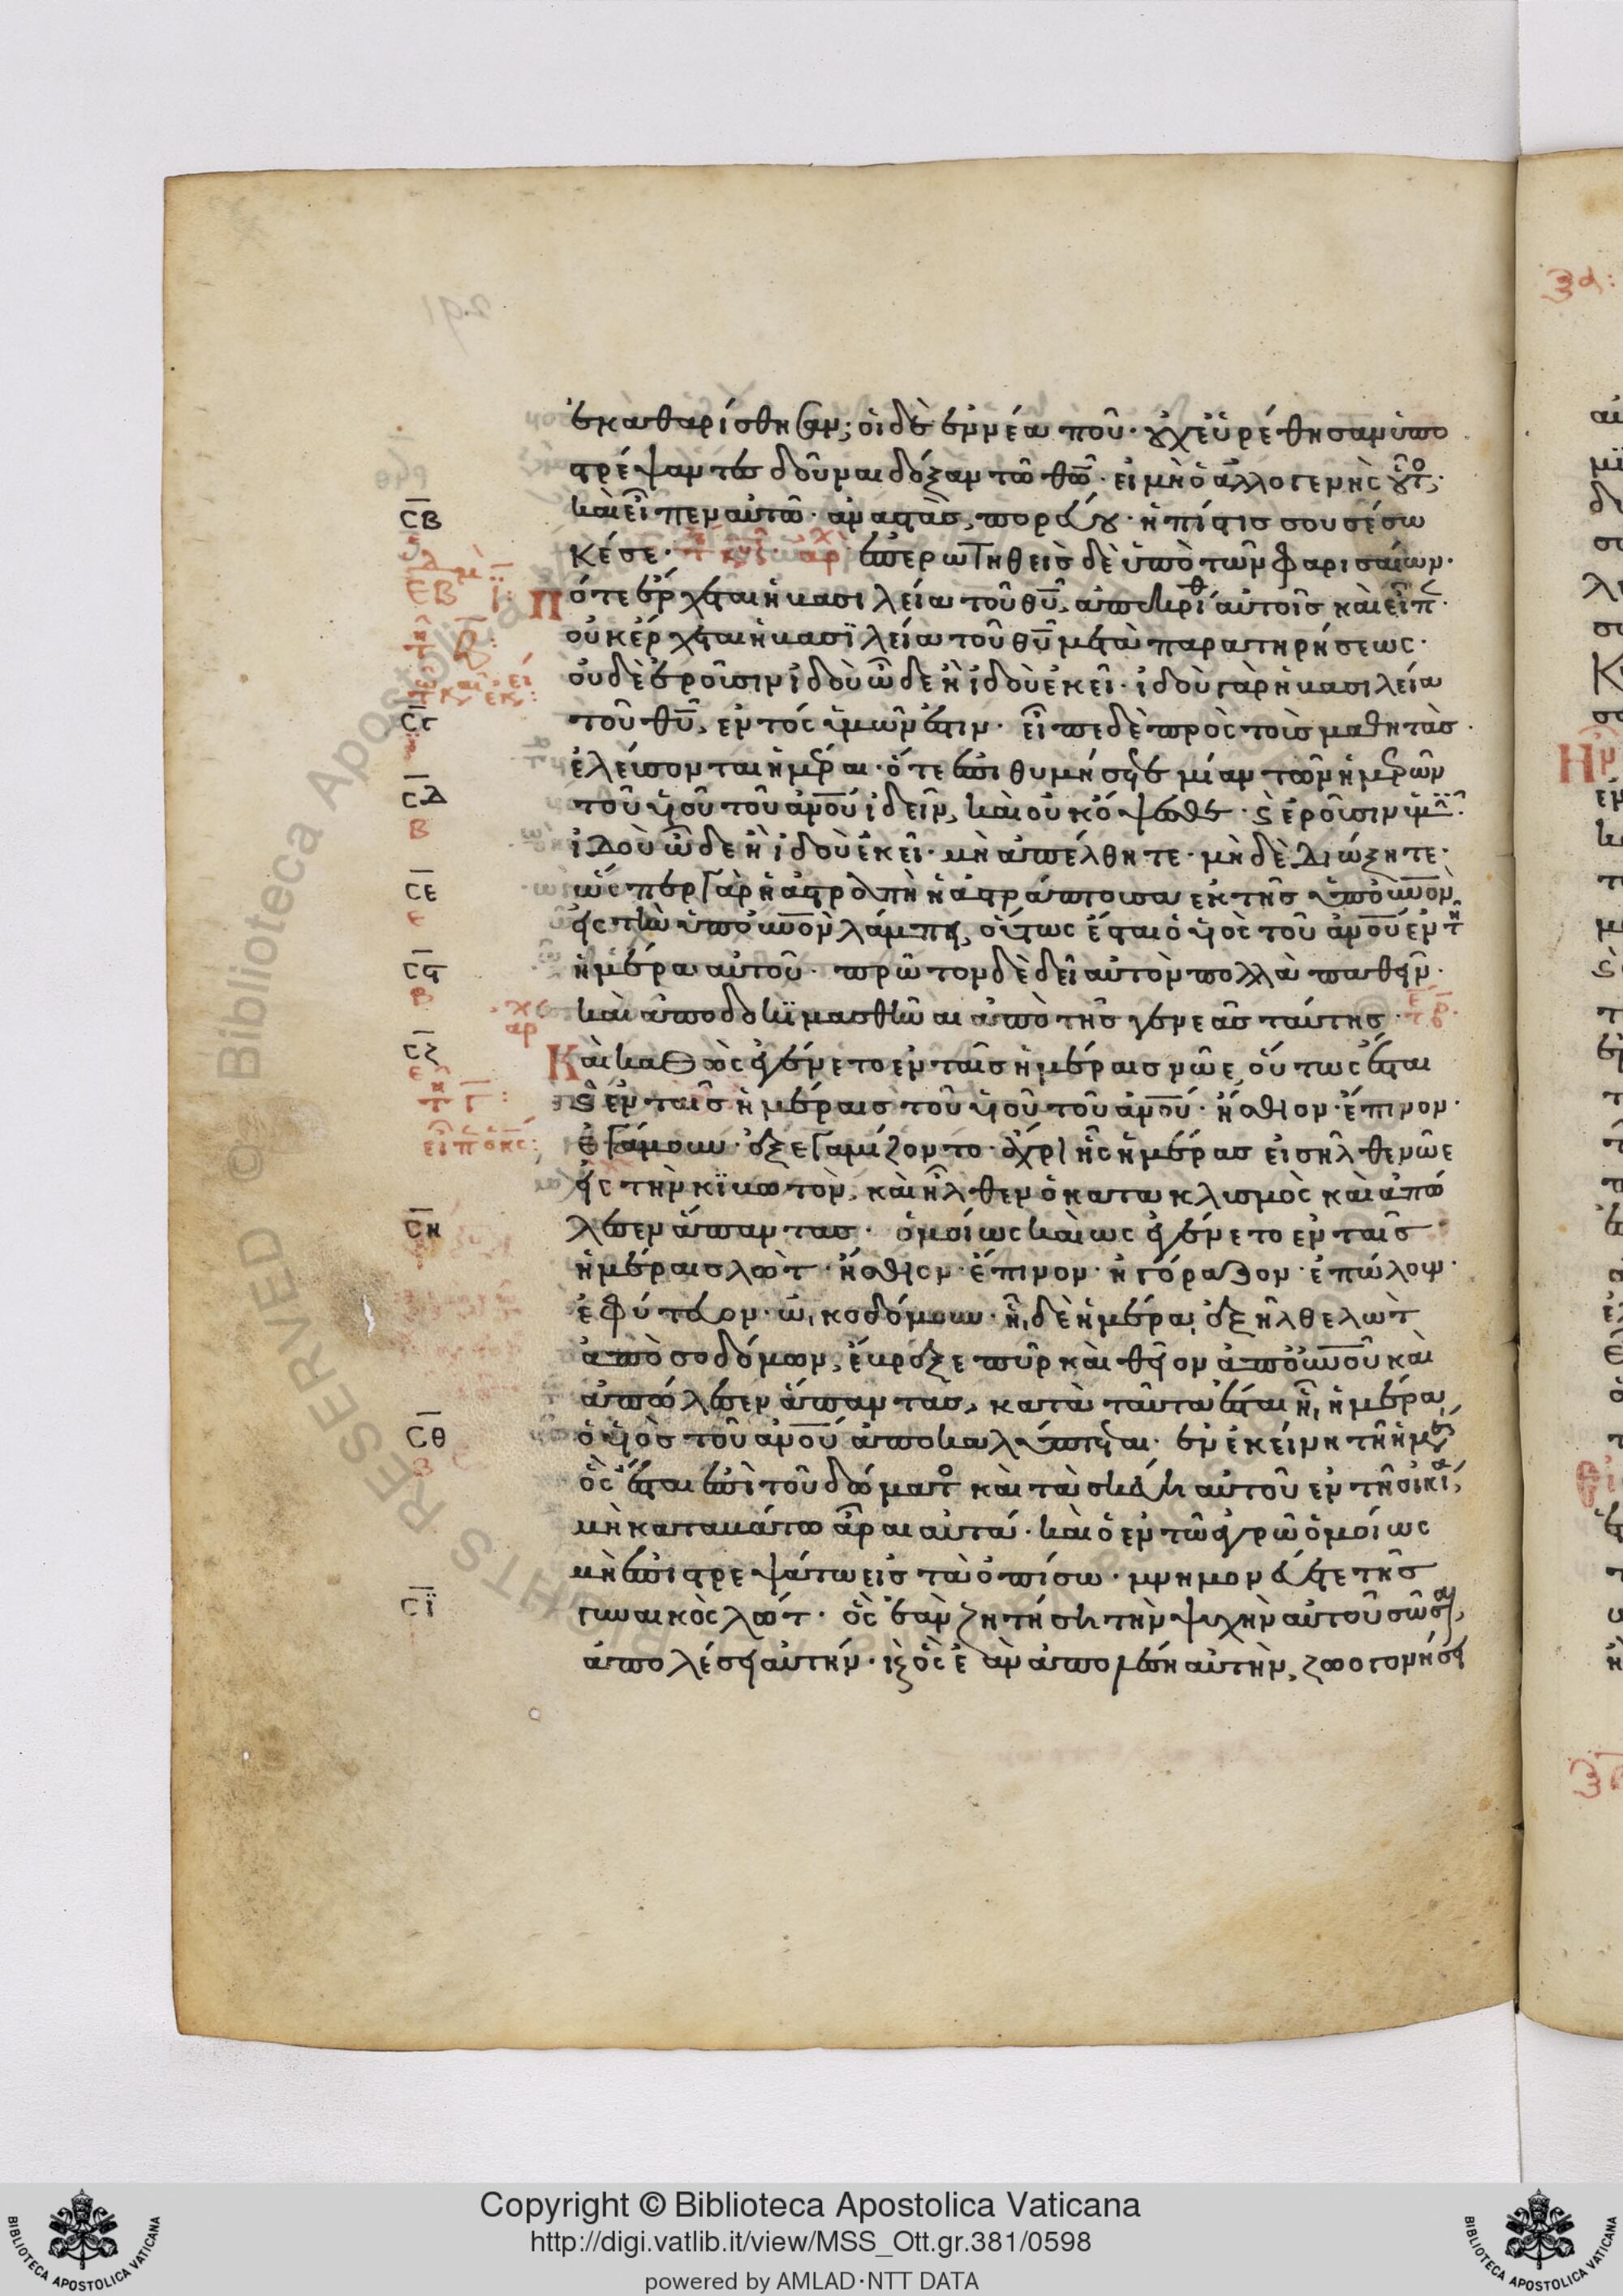 ἐκαθαρίσθησαν; οἱ δὲ ἐννέα ποῦ· οὐχ εὑρέθησαν ὑπο
στρέψαντες δοῦναι δόξαν τῶ θῶ· εἰ μὴ ὁ ἀλλογενὴς οὗτο
καὶ εἶπεν αὐτῶ· ἀναστὰς, πορεύου· ἡ πίστις σου σέσω
κέ σε· ἀρ ἐπερωτηθεὶς δὲ ὑπὸ τῶν φαρισαίων·
πότε ἔρχεται ἡ βασιλεία τοῦ θυ, ἀπεκρίθ αὐτοῖς καὶ εἶπ·
οὐκ έρχεται ἡ βασϊλεία τοῦ θυ μετὰ παρατηρήσεως·
οὐδὲ ἐροῦσιν ἰδοὺ ὧδε ἢ ἰδοὺ ἐκεῖ· ἰδοὺ γὰρ ἡ βασιλεία
τοῦ θυ, ἐντός ὑμῶν ἐστιν· εἶπε δὲ πρὸς τοὺς μαθητὰς·
ἐλεύσονται ἡμέραι· ὅτε ἐπιθυμήσητε μίαν τῶν ἡμερῶν
τοῦ υἱοῦ τοῦ ανου ἰδεῖν, καὶ οὐκ όψεσθε· ϛ ἐροῦσιν ὑμῖν·
ἰδοὺ ὧδε ἢ ἰδοὺ ἐκεῖ· μὴ ἀπέλθητε· μὴ δὲ διώξητε·
ὥσπερ γὰρ ἡ ἀστραπὴ ἡ ἀστράπτουσα ἐκ τῆς ὑπ' οὐνον
εἰς τὴν ὑπ' οὐνον λάμπει, οὕτως ἔσται ὁ υἱὸς τοῦ ανου ἐν τῆ
ἡμέρα αὐτοῦ· πρῶτον δὲ δεῖ αὐτὸν πολλὰ παθεῖν·
καὶ ἀποδοκϊμασθῆναι ἀπὸ τῆς γενεᾶς ταύτης·
Καὶ καθὼς ἐγένετο ἐν ταῖς ἡμέραις νῶε, οὕτως ἔσται
ϛ ἐν ταῖς ἡμέραις τοῦ υἱοῦ τοῦ ανου· ἤσθιον· ἔπινον·
ἐγάμουν· ἐξεγαμίζοντο· ἄχρι ἧς ἡμέρας εἰσῆλθε νῶε
εἰς τὴν κϊβωτὸν, καὶ ἦλθεν ὁ κατακλυσμὸς καὶ ἀπώ
λεσεν ἅπαντας· ὁμοίως καὶ ὡς ἐγένετο ἐν ταῖς
ἡμέραις λώτ· ἤσθιον· ἔπινον· ἠγόραζον· ἐπώλουν·
ἐφύτευον· ὠκοδόμουν· ἧ δὲ ἡμέρα, ἐξῆλθε λὼτ
ἀπὸ σοδόμων, ἔβρεξε πῦρ καὶ θεῖον ἀπ' οὐνοῦ καὶ
ἀπώλεσεν ἅπαντας, κατὰ ταῦτα ἔσται ἧ ἡμέρα
ὁ υἱὸς τοῦ ανου ἀποκαλύπτεται· ἐν ἐκείνη τῆ ἡμέρ
ὃς ἔσται ἐπὶ τοῦ δώματο καὶ τὰ σκεύη αὐτοῦ ἐν τῆ οἰκία,
μὴ καταβάτω ἆραι αὐτά· καὶ ὁ ἐν τῶ ἀγρῶ ὁμοίως
μὴ ἐπιστρεψάτω εἰς τὰ ὀπίσω· μνημονεύετε τῆς
γυναικὸς λώτ· ὃς ἐὰν ζητήση τὴν ψυχὴν αὐτοῦ σῶσαι,
ἀπολέσει αὐτήν· καὶ ὃς ἐὰν ἀπολέση αὐτὴν, ζωογονήσει
ϹΒ
ϹΓ
ϹΔ
Β
ϹΕ
Ε
Ϲϛ
Β
ϹΖ
Ε
ϹΗ
ϹΘ
ϹΪ
Copyright © Biblioteca Apostolica Vaticana
http://digi.vatlib.it/view/MSS_Ott.gr.381/0598
powered by AMLAD·NTT DATA
BIBLIOTECA APOSTOLICA VATICANA
BIBLIOTECA APOSTOLICA VATICANA